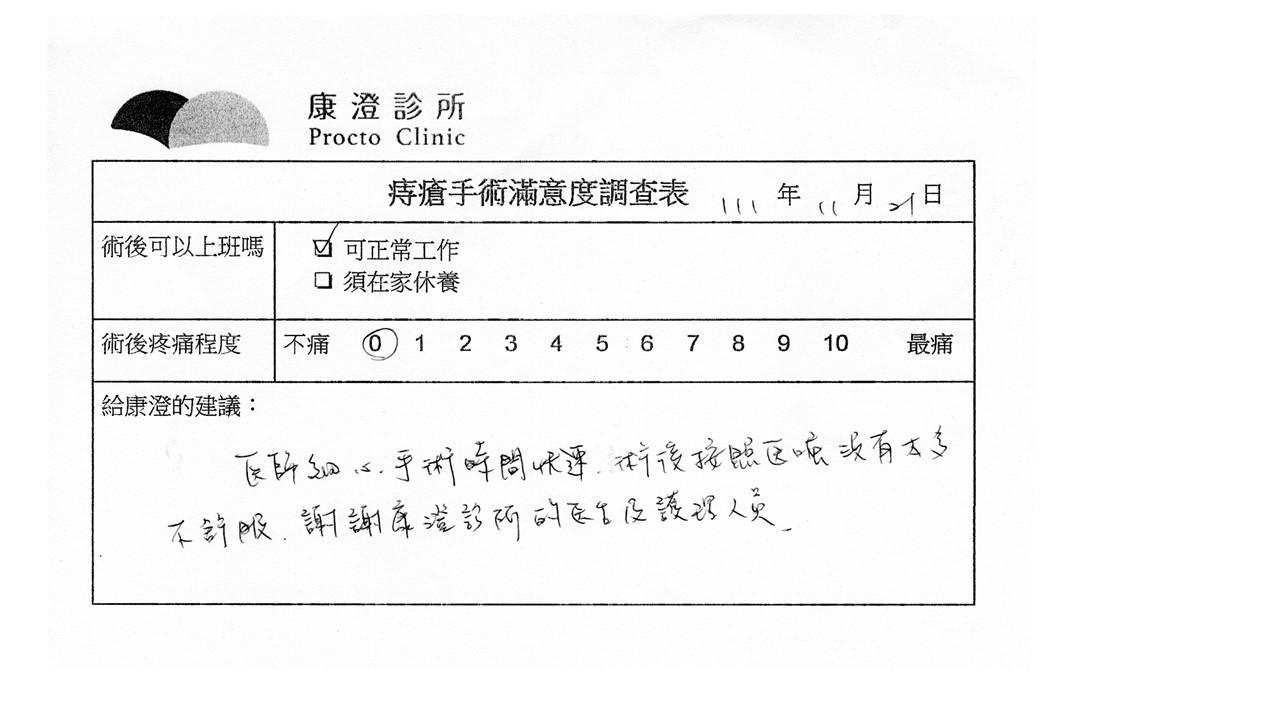 康澄診所
Procto Clinic
痔瘡手術滿意度調查表 111 年 11 月 21 日
術後可以上班嗎
☑ 可正常工作
☐ 須在家休養
術後疼痛程度 不痛 0 1 2 3 4 5 6 7 8 9 10 最痛
給康澄的建議：
医師細心.手術時間快速.術後按照医嘱没有太多
不舒服.謝謝康澄診所的医生及護理人員.